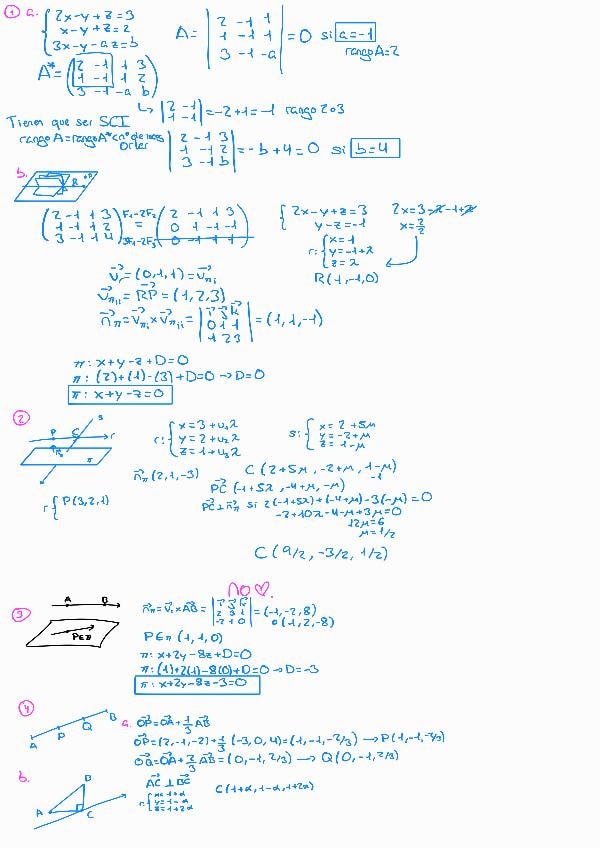 ① a. { 2x-y+z=3
x-y+z=2
3x-y-az=b
A= | 2 -1 1
1 -1 1
3 -1 -a | =0 si a=-1
rango A=2
A*= ( 2 -1 1 3
1 -1 1 2
3 -1 -a b )
↳ | 2 -1
1 -1 | =-2+1=-1 rango 2 o 3
Tienen que ser SCI
rango A=rango A*<nº de incog
Orlar | 2 -1 3
1 -1 2
3 -1 b | =-b+4=0 si b=4
b.
( 2 -1 1 3
1 -1 1 2
3 -1 1 4 ) F1-2F2
3F1-2F3 = ( 2 -1 1 3
0 1 -1 -1
0 -1 1 1 )
{ 2x-y+z=3
y-z=-1
x=2/2
r: { x=1
y=-1+λ
z=λ
R(1,-1,0)
Vr=(0,1,1)=Vπi
Vπii=RP=(1,2,3)
nπ=Vπi×Vπii= | i j k
0 1 1
1 2 3 | =(1,1,-1)
π: x+y-z+D=0
π: (2)+(1)-(3)+D=0→D=0
π: x+y-z=0
②
P C s r
π
r { P(3,2,1)
r: { x=3+u1λ
y=2+u2λ
z=1+u3λ
s: { x=2+5μ
y=-2+μ
z=1-μ
nπ(2,1,-3)
C(2+5μ, -2+μ, 1-μ)
-1
PC(-1+5λ, -4+μ, -μ)
PC⊥nπ si 2(-1+5λ)+(-4+μ)-3(-μ)=0
-2+10λ-4-μ+3μ=0
12μ=6
μ=1/2
C(9/2, -3/2, 1/2)
NO ♡.
③
A B
P∈π
P∈π(1,1,0)
π: x+2y-8z+D=0
π: (1)+2(1)-8(0)+D=0→D=-3
π: x+2y-8z-3=0
④
A P Q B
a. OP=OA+1/3 AB
OP=(2,-1,-2)+1/3(-3,0,4)=(1,-1,-2/3)→P(1,-1,-2/3)
OQ=OA+2/3 AB=(0,-1,2/3)→Q(0,-1,2/3)
b.
A B C
AC⊥BC
r: { x=1+α
y=1-α
z=1+2α
C(1+α,1-α,1+2α)